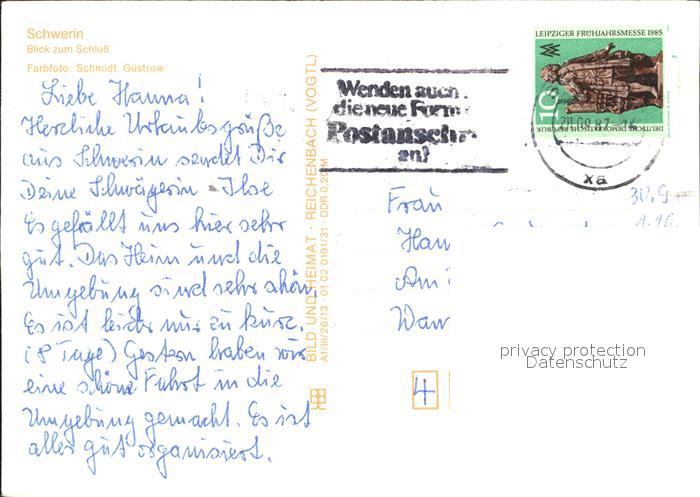 Schwerin
Blick zum Schloß
Farbfoto: Schmidt, Güstrow
Liebe Hanna!
Herzliche Urlaubsgrüße
aus Schwerin sendet Dir
Deine Schwägerin Ilse
Es gefällt uns hier sehr
gut. Das Heim und die
Umgebung sind sehr schön.
Es ist leider nur zu kurz.
(8 Tage) Gestern haben wir
eine schöne Fahrt in die
Umgebung gemacht. Es ist
alles gut organisiert.
BILD UND HEIMAT · REICHENBACH (VOGTL)
A1/III/26/13 · 01 02 0191/31 · DDR 0,20 M
Wenden auch
die neue Form
Postansch
an?
LEIPZIGER FRÜHJAHRSMESSE 1985
10
DEUTSCHE DEMOKRATISCHE REPUBLIK
xa
30.9
1.10.
Frau
Han
Am
Wan
4
privacy protection
Datenschutz